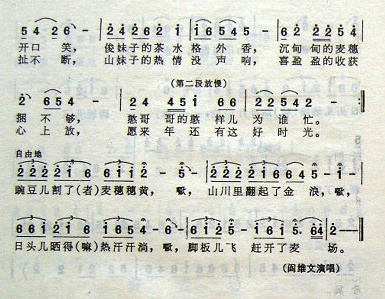 5 4 2 6 - | 2·4 2 6 2 2 1 6 5 4 5 - | 6 2 2 2 5 4 |
开口 笑， 俊妹子的茶水格外香， 沉甸 甸的麦穗
扯不 断， 山妹子的热情没声响， 喜盈 盈的收获
(第二段放慢)
2 6 5 4 - | 2 4 4 5 1 6 6 | 2 2 5 4 2 - :‖
捆 不够， 憨哥 哥的憨 样儿 为 谁忙。
心 上放， 愿来 年还有这 好 时光。
自由地
2 2 2 2 2 1 6 1 2 2 2 1 2 - 5 - , | 2 2 2 1 2 2 1 2 - 5 - 1 - |
豌豆儿割了(者)麦穗穗黄，噉， 山川里翻起了金 浪，噉，
6 6 1 2 1 6 1 2 2 1 6 5 - 1 - | 6 1 2 1 - 6 1 1 5· 6 4 2 - - ‖
日头儿晒得(嘛)热汗汗淌，噉，脚板儿飞 赶开了麦 场。
(阎维文演唱)